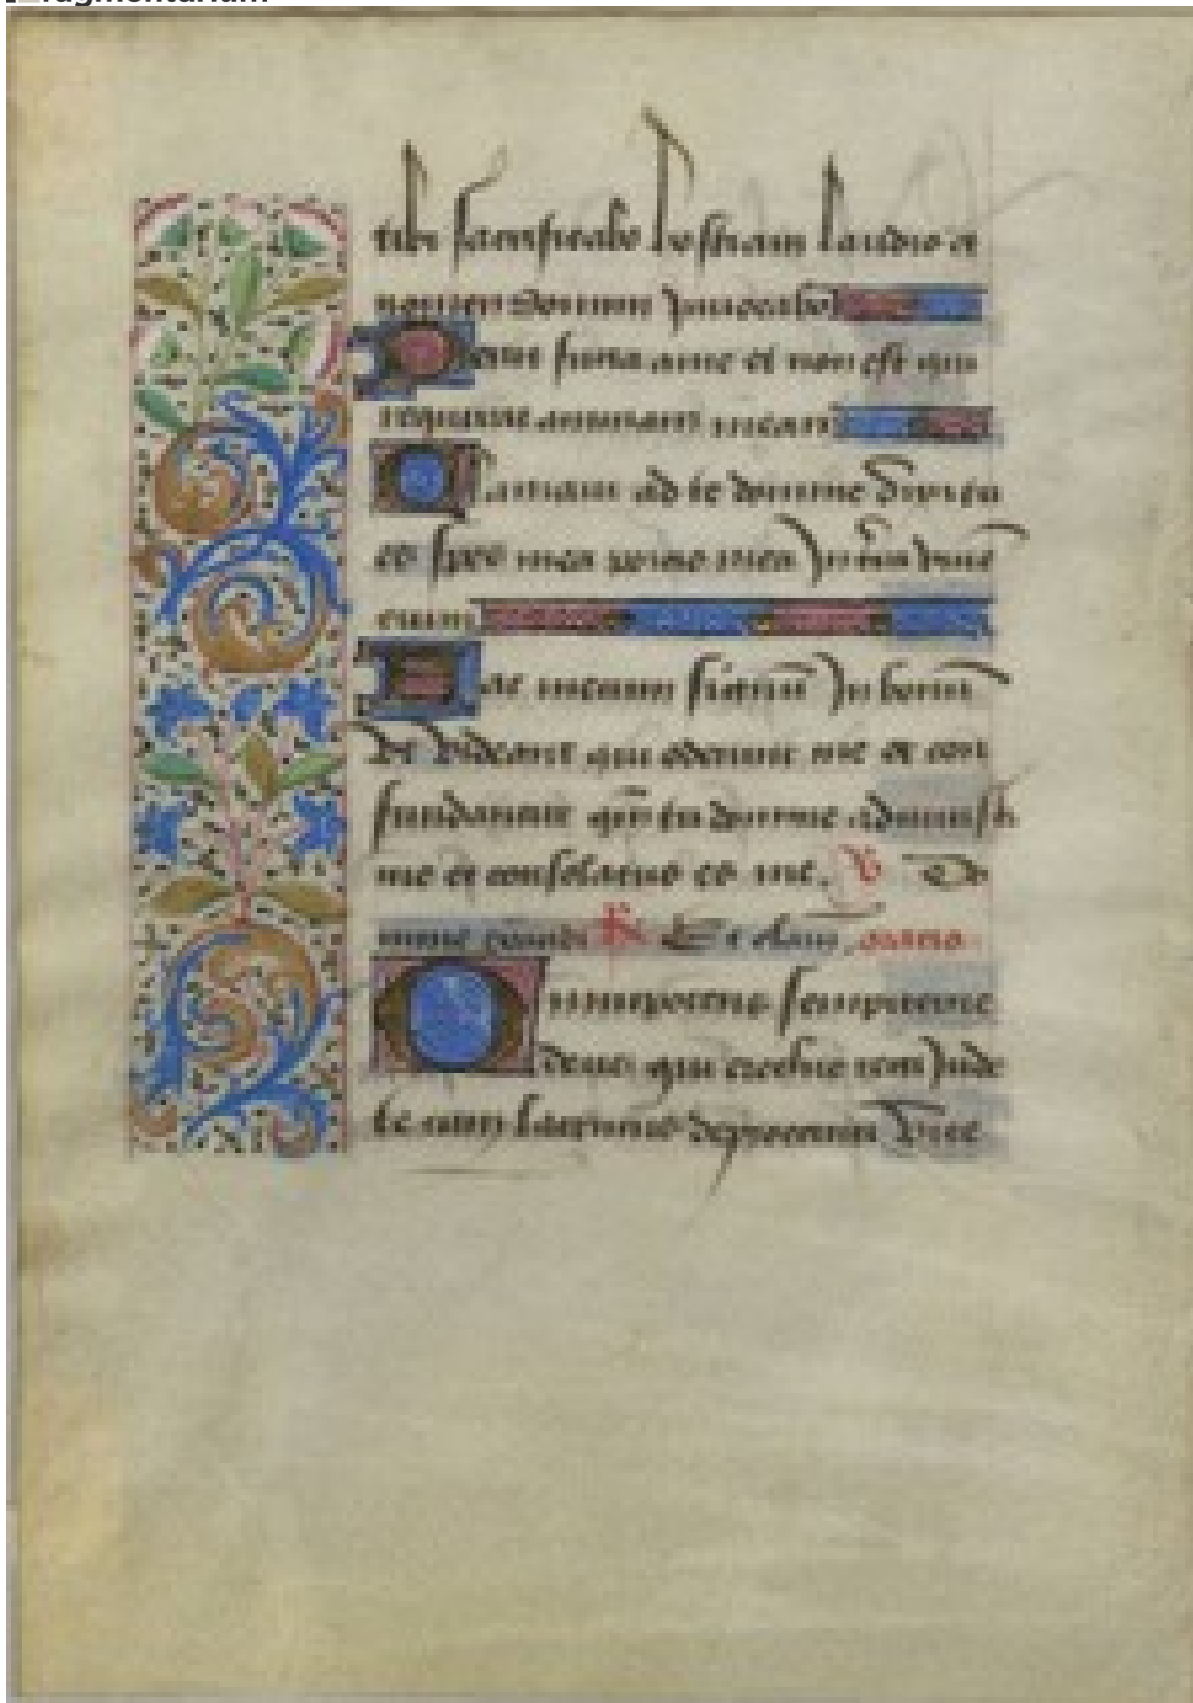 ragmentarium
tibi sacrificabo hostiam laudis et
nomen domini invocabo
Periit fuga a me et non est qui
requirat animam meam
Clamavi ad te domine dixi tu
es spes mea portio mea in t͞ra vive͞
cium
Fac mecum signu͞ in bonu͞
ut videant qui oderunt me et con
fundantur qm͞ tu domine adiuvisti
me et consolatus es me. V Do
mine exaudi R Et clamor oratio
Omnipotens sempiterne
deus qui ezechie regi iude
te cum lacrimis deprecanti vite